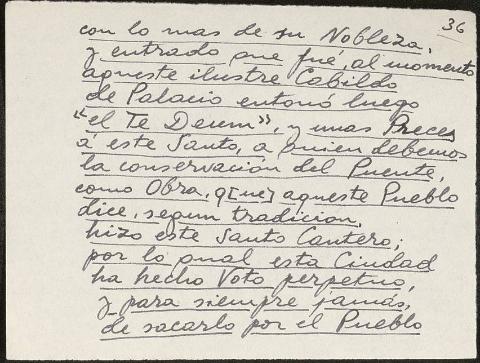 36
con lo mas de su Nobleza,
y entrado que fué, al momento
aqueste ilustre Cabildo
de Palacio entonó luego
"el Te Deum", y unas Preces
á este Santo, a quien debemos
la conservación del Puente,
como Obra, q[ue] aqueste Pueblo
dice, segun tradicion,
hizo este Santo Cantero;
por lo qual esta Ciudad
ha hecho Voto perpetuo,
y para siempre jamás,
de sacarlo por el Pueblo